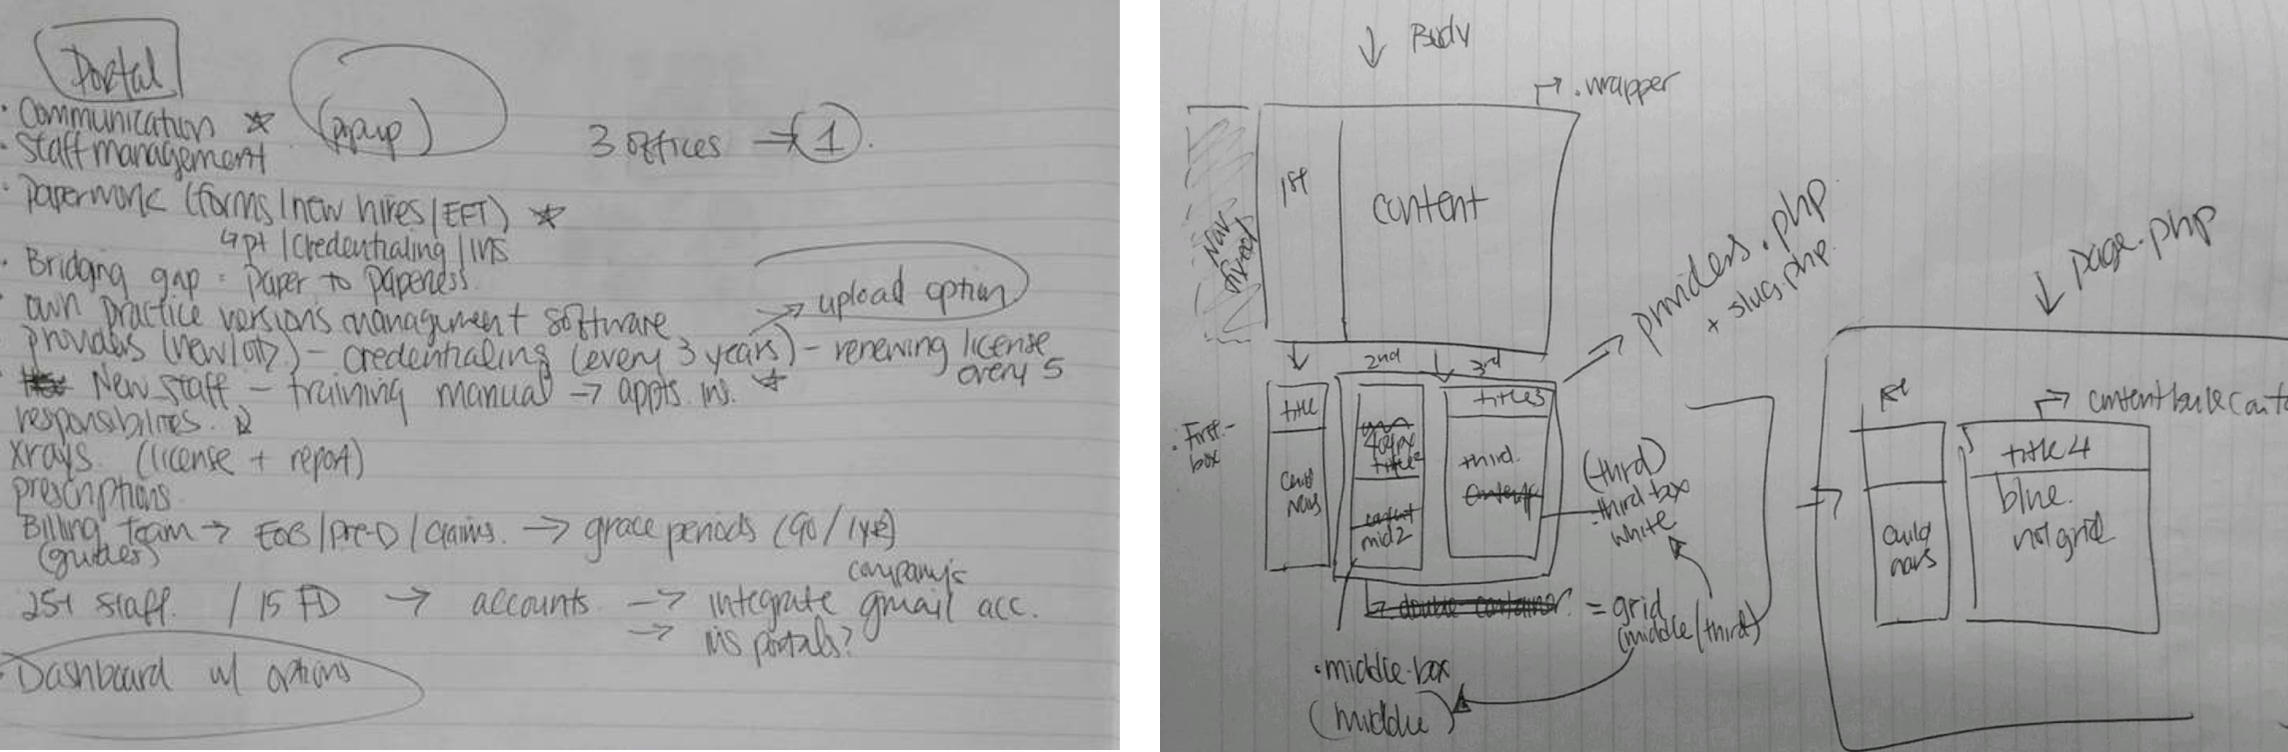 Portal
(popup)
3 offices → 1.
· Communication ☆
· Staff management
· Paperwork (forms/new hires/EFT) ☆
↳ pt / credentialing / INS
· Bridging gap = Paper to paperless
· own practice versions management software
→ upload option
providers (new/old) - credentialing (every 3 years) - renewing license every 5
New staff - training manual → appts. ins. ☆
responsibilities.
xrays (license + report)
prescriptions
Billing team → EOB / Pre-D / Claims. → grace periods (90 / 1yr)
(guides)
25+ staff. / 15 FD → accounts → integrate company's gmail acc.
→ ins portals?
Dashboard w/ options
↓ Body
→ .wrapper
Nav fixed
1st
content
2nd
3rd
→ providers.php
+ slug.php
· First-box
title
child navs
title2
content
mid2
title3
third
content
(third)
-third-box
white
→ double container = grid
(middle/third)
·middle-box
(middle)
↓ page.php
1st
child navs
title 4
blue.
not grid